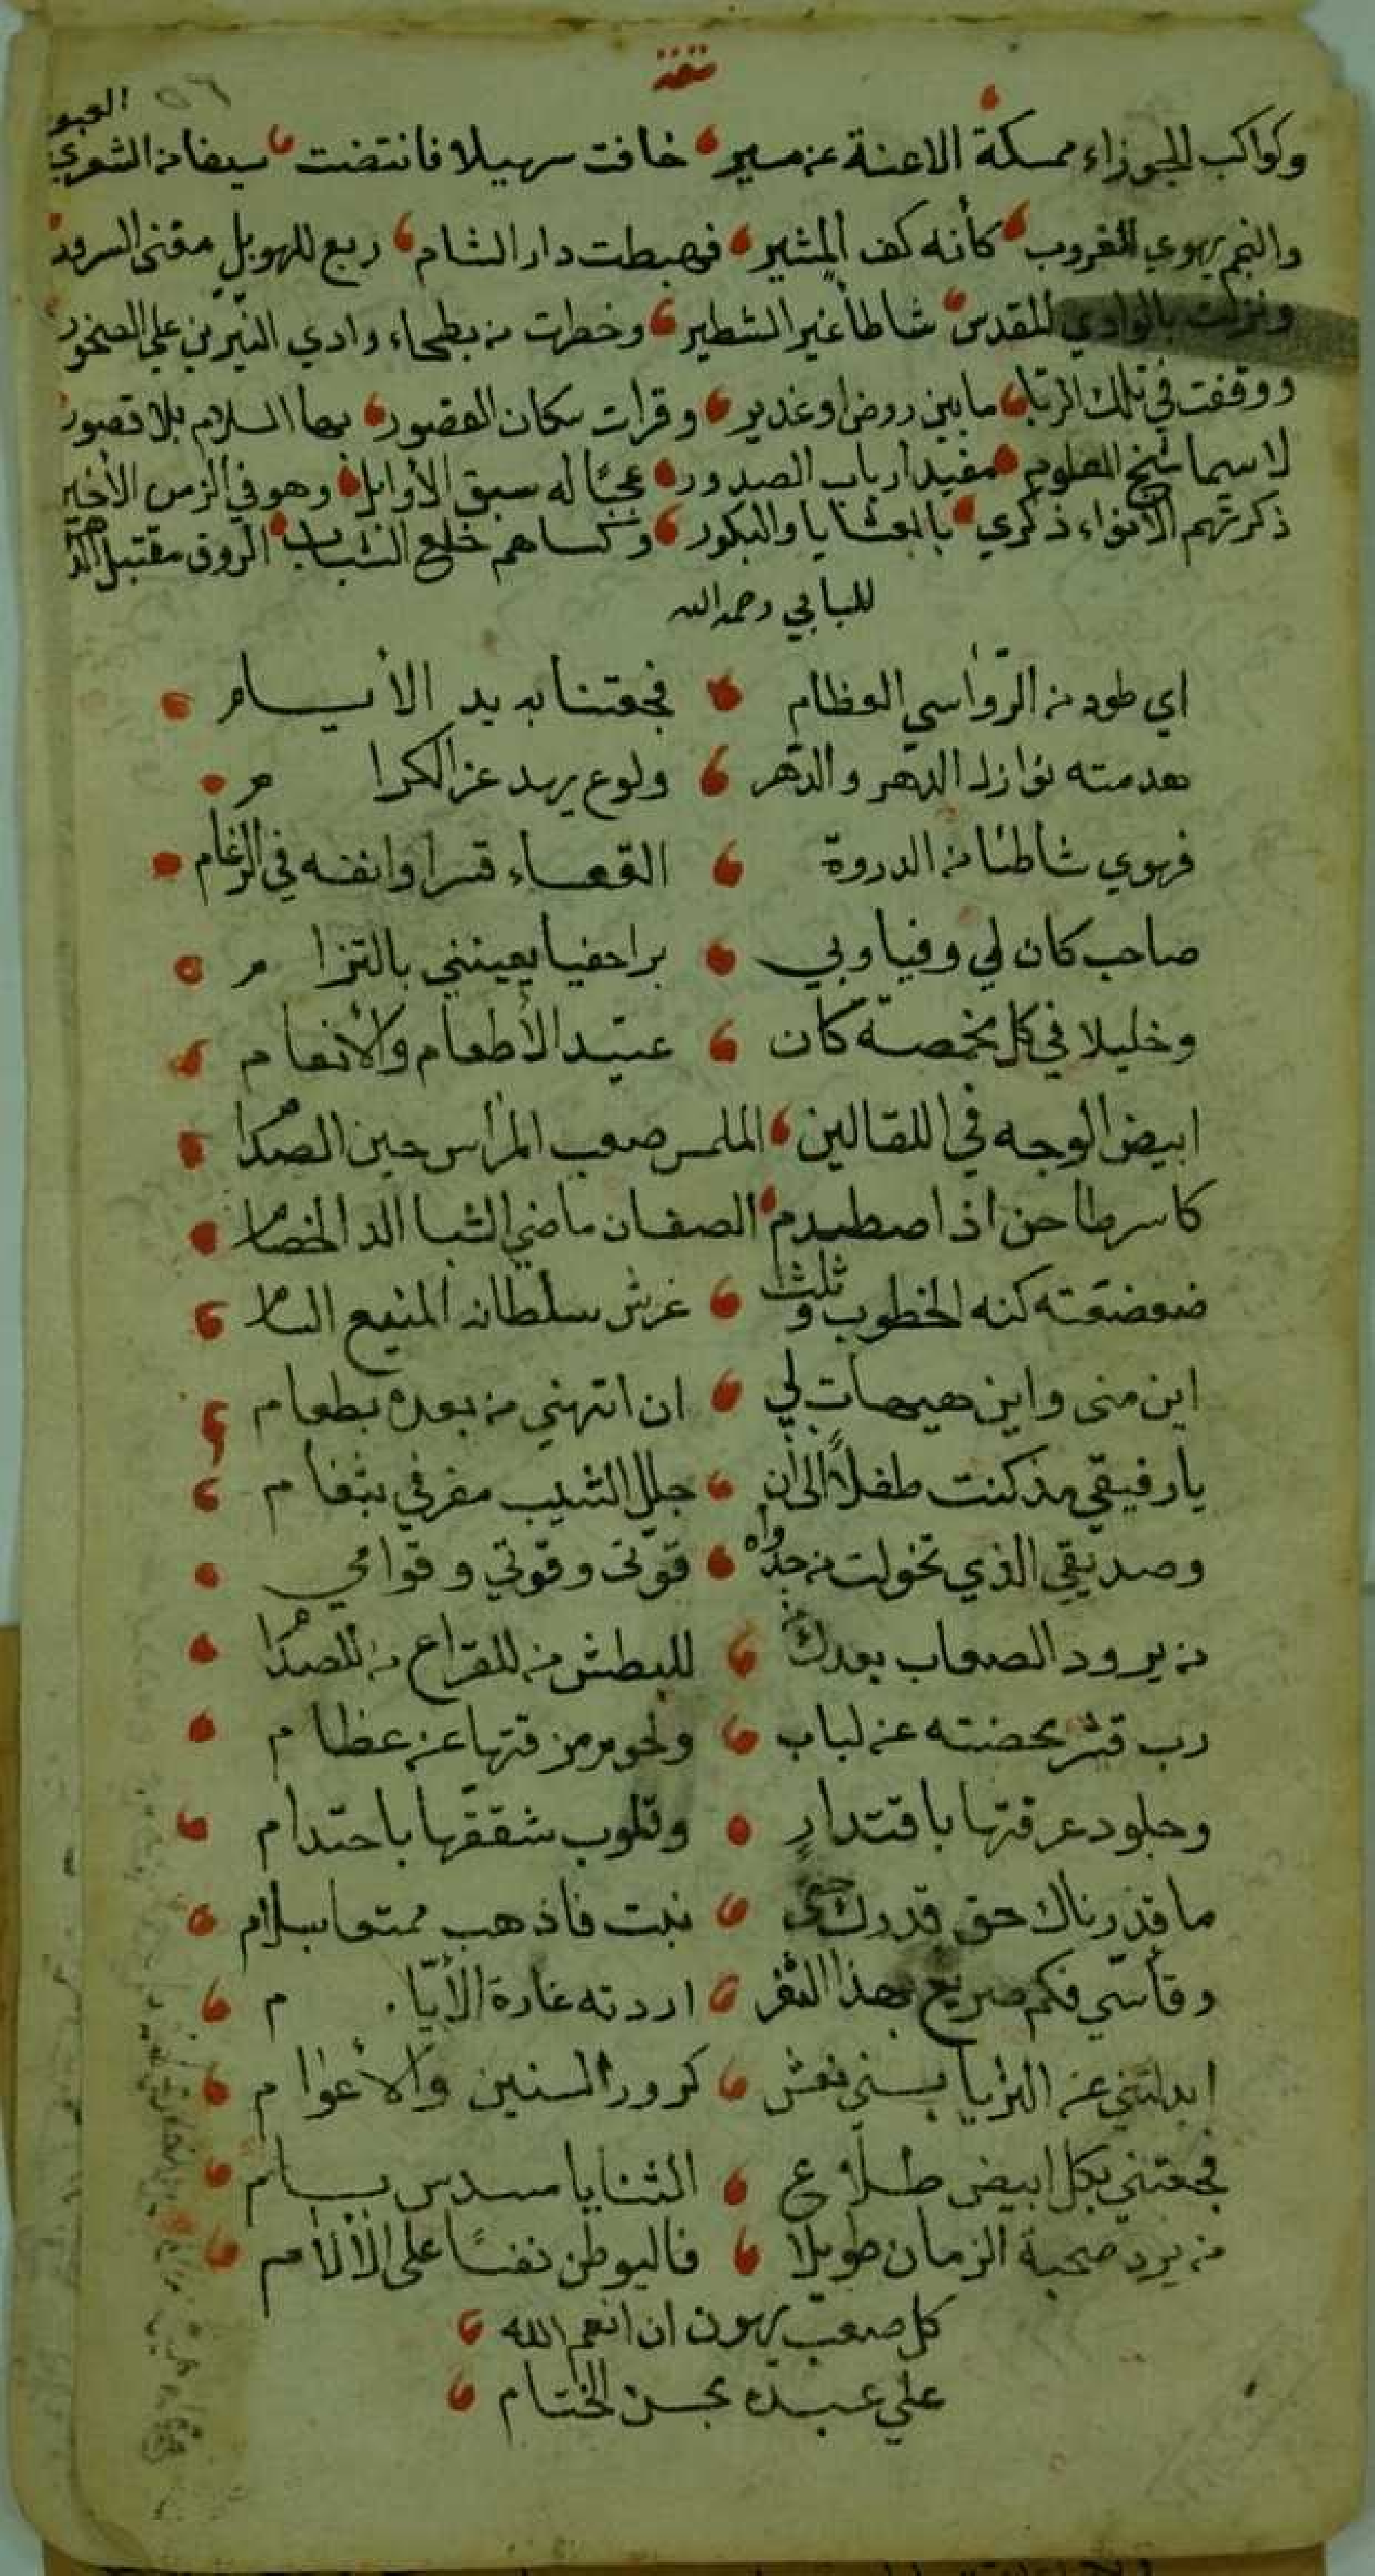 تتمة
العبور
وكواكب الجوزاء ممسكة الاعنة عن مسير خافت سهيلا فانتضت سيفا من الشعرى
والنجم يهوي للغروب كأنه كف المشير فهبطت دار الشام ربع للهوبل مغنى السرور
ونزلت بالوادي المقدس شاطأ غير الشطير وخطرت من بطحاء وادي النيربين على الصخور
ووقفت في تلك الربا ما بين روض او غدير وقرات سكان القصور بها السلام بلا قصور
لا سيما شيخ العلوم مفيد ارباب الصدور عجبًا له سبق الأوايل وهو في الزمن الأخير
ذكرتهم الانواء ذكري بالعشايا والبكور وكساهم خلع الشباب الروق مقتبل الدهور
للبابي رحمه الله
اي طود من الرّواسي العظام فجعتنا به يد الأيام
هدمته نوازل الدهر والدهر ولوع يريد عز الكرام
فهوي شاطئا من الدروة القعساء قسرا وانفه في الرّغام
صاحب كان لي وفيا وبي برا حفيا يعينني بالتزام
وخليلا في كل مخمصة كان عتيد الأطعام والأنعام
ابيض الوجه في اللقا لين الملمس صعب المرأس حين الصدام
كاسر طاحن اذا اصطدم الصفان ماضي الشبا الد الخصام
ضعضعته كنه الخطوب وثلث عرش سلطانه المنيع السام
اين مني واين هيهات لي ان اتهني من بعده بطعام
يا رفيقي مذ كنت طفلاً الى أن جلل الشيب مفرقي بثغام
وصديقي الذي تخولت من جدواه قوّتى وقوتي وقوامي
من يرود الصعاب بعدك من للبطش من للقراع من للصدام
رب قشر محضته عن لباب ولحوم مزقتها عن عظام
وجلود عرقتها باقتدارٍ وقلوب شققتها باحتدام
ما قدرناك حق قدرك حتى نبت فاذهب ممتعا بسلام
وتأسّي فكم صريع بهذا الثغر اردته غارة الأيّام
ابدلتني عن الثريا ببني نعش كرور السنين والأعوام
فجعتني بكل ابيض طلاّع الثنايا مسدس بسام
من يرد صحبة الزمان طويلا فاليوطن نفسًا على الألام
كل صعب يهون ان انعم الله
علي عبده بحسن الختام